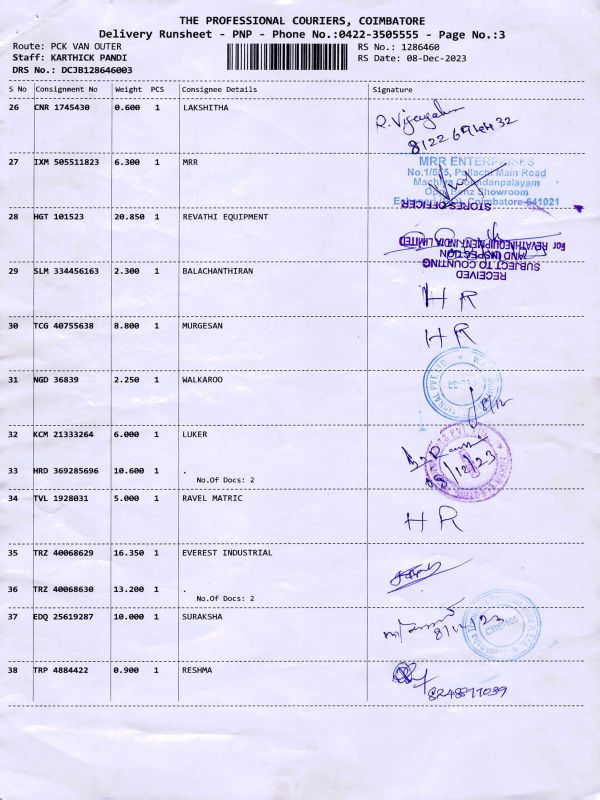 THE PROFESSIONAL COURIERS, COIMBATORE
Delivery Runsheet - PNP - Phone No.:0422-3505555 - Page No.:3
Route: PCK VAN OUTER
RS No.: 1286460
Staff: KARTHICK PANDI
RS Date: 08-Dec-2023
DRS No.: DCJB128646003
S No Consignment No Weight PCS Consignee Details Signature
26 CNR 1745430 0.600 1 LAKSHITHA
27 IXM 505511823 6.300 1 MRR
MRR ENTERPRISES
Pollachi Main Road
Showroom
Coimbatore-641021
STORES OFFICER
28 HGT 101523 20.850 1 REVATHI EQUIPMENT
For REVATHI EQUIPMENT INDIA LIMITED
RECEIVED
SUBJECT TO COUNTING
AND INSPECTION
29 SLM 334456163 2.300 1 BALACHANTHIRAN
HR
30 TCG 40755638 8.800 1 MURGESAN
HR
31 NGD 36839 2.250 1 WALKAROO
8/12
32 KCM 21333264 6.000 1 LUKER
08/12/23
33 HRD 369285696 10.600 1 .
No.Of Docs: 2
34 TVL 1928031 5.000 1 RAVEL MATRIC
HR
35 TRZ 40068629 16.350 1 EVEREST INDUSTRIAL
36 TRZ 40068630 13.200 1 .
No.Of Docs: 2
37 EDQ 25619287 10.000 1 SURAKSHA
8/12/23
38 TRP 4884422 0.900 1 RESHMA